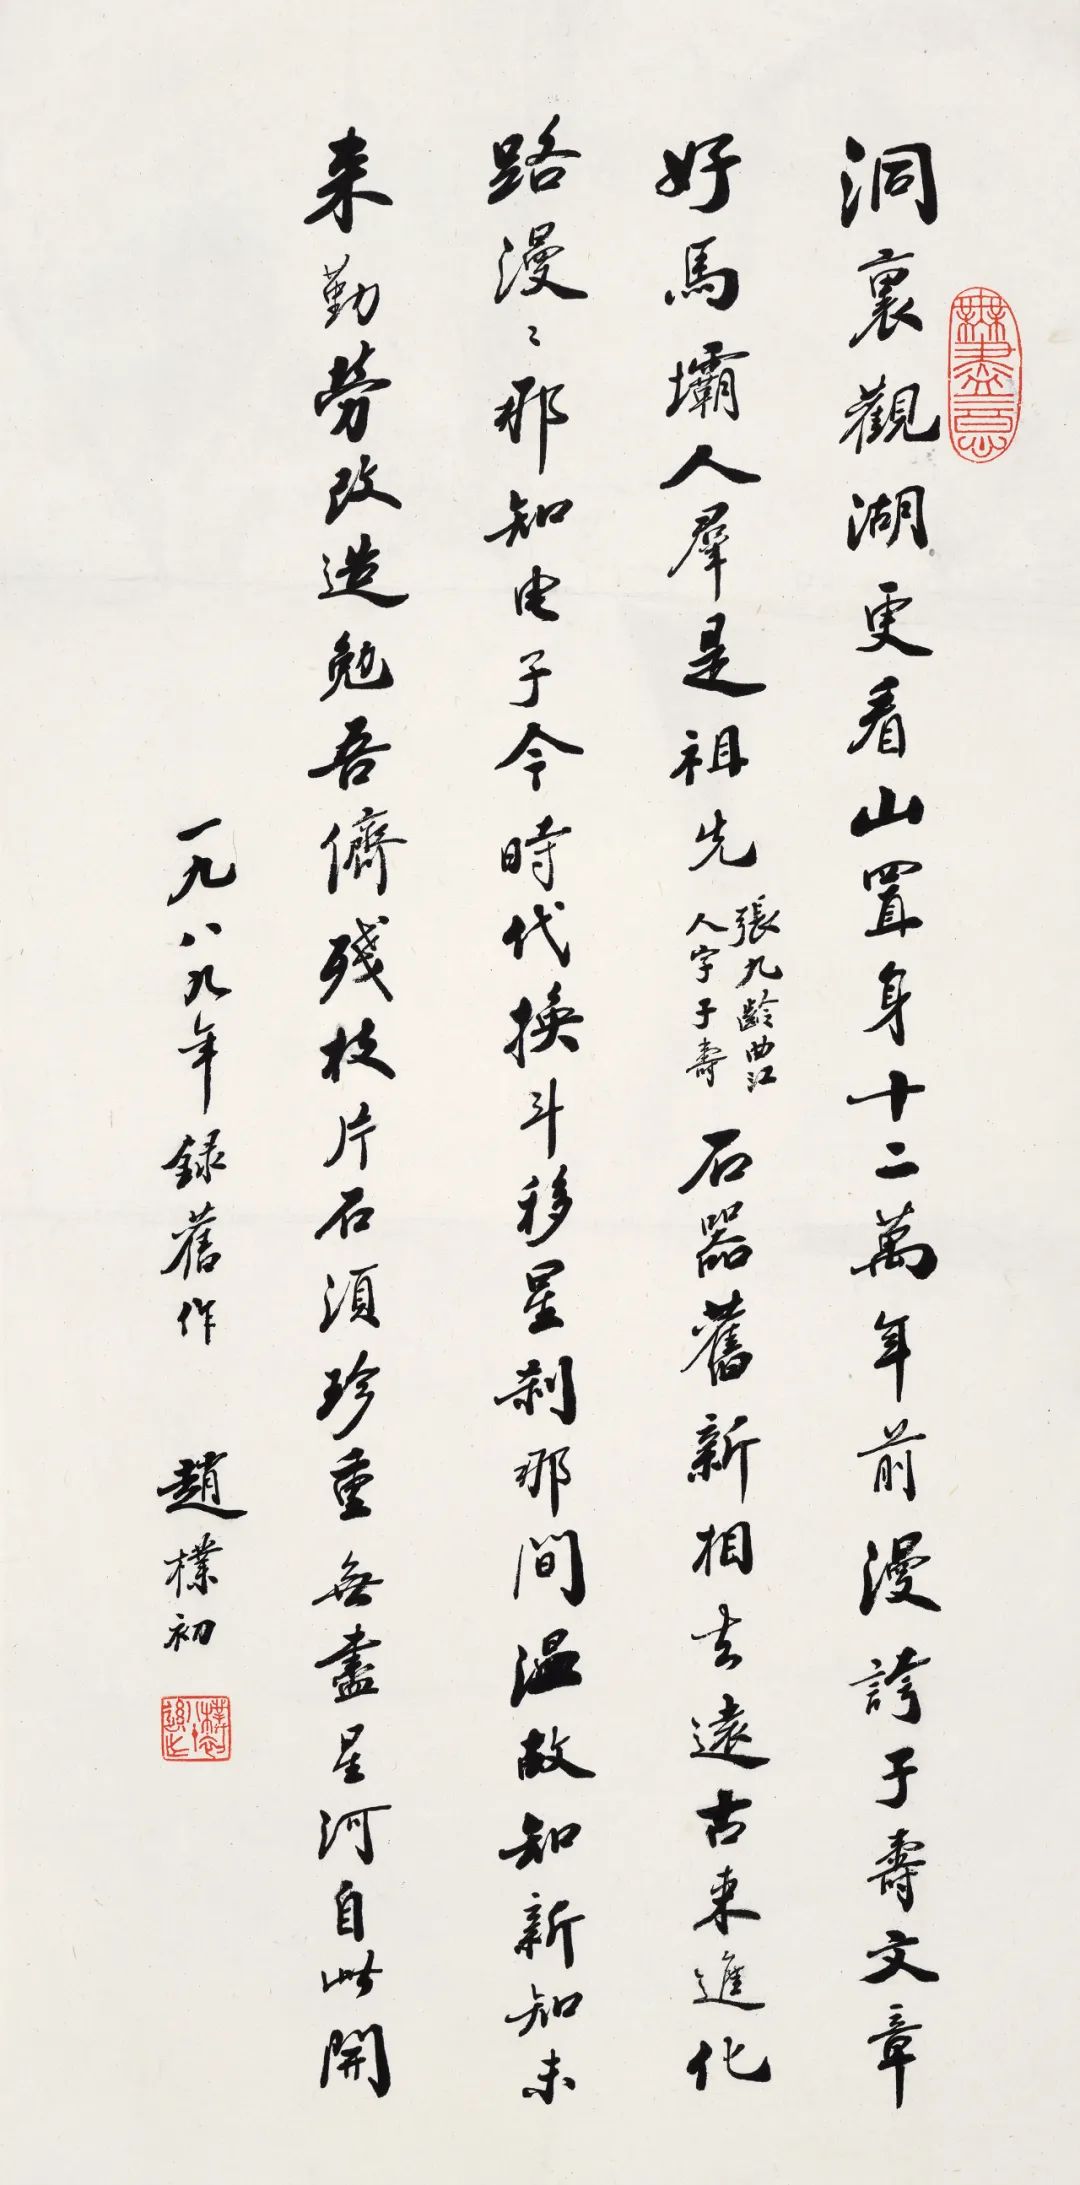 洞裏觀湖更看山置身十二萬年前漫誇子壽文章
好馬壩人羣是祖先
張九齡曲江
人字子壽
石器舊新相去遠古來進化
路漫〻那知电子令時代換斗移星刹那間温故知新知未
来勤勞改造勉吾儕殘枝片石須珍重無盡星河自此開
一九八九年録舊作 趙樸初
無盡意